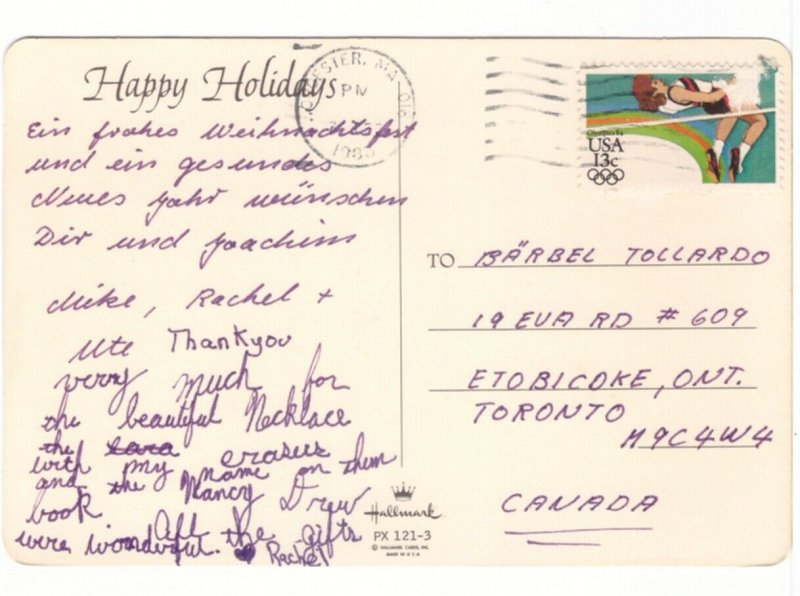 Happy Holidays
Ein frohes Weihnachtsfest
und ein gesundes
Neues Jahr wünschen
Dir und Joachim
Mike, Rachel +
Ute Thankyou
verry much for
the beautiful Necklace
the erasers
with my name on them
and the Nancy Drew
book. All the gifts
were wonderful. ♥ Rachel
PM
Olympics 84
USA
13c
TO BÄRBEL TOLLARDO
19 EVA RD # 609
ETOBICOKE, ONT.
TORONTO
M9C4W4
CANADA
Hallmark
PX 121-3
© HALLMARK CARDS, INC.
MADE IN U.S.A.